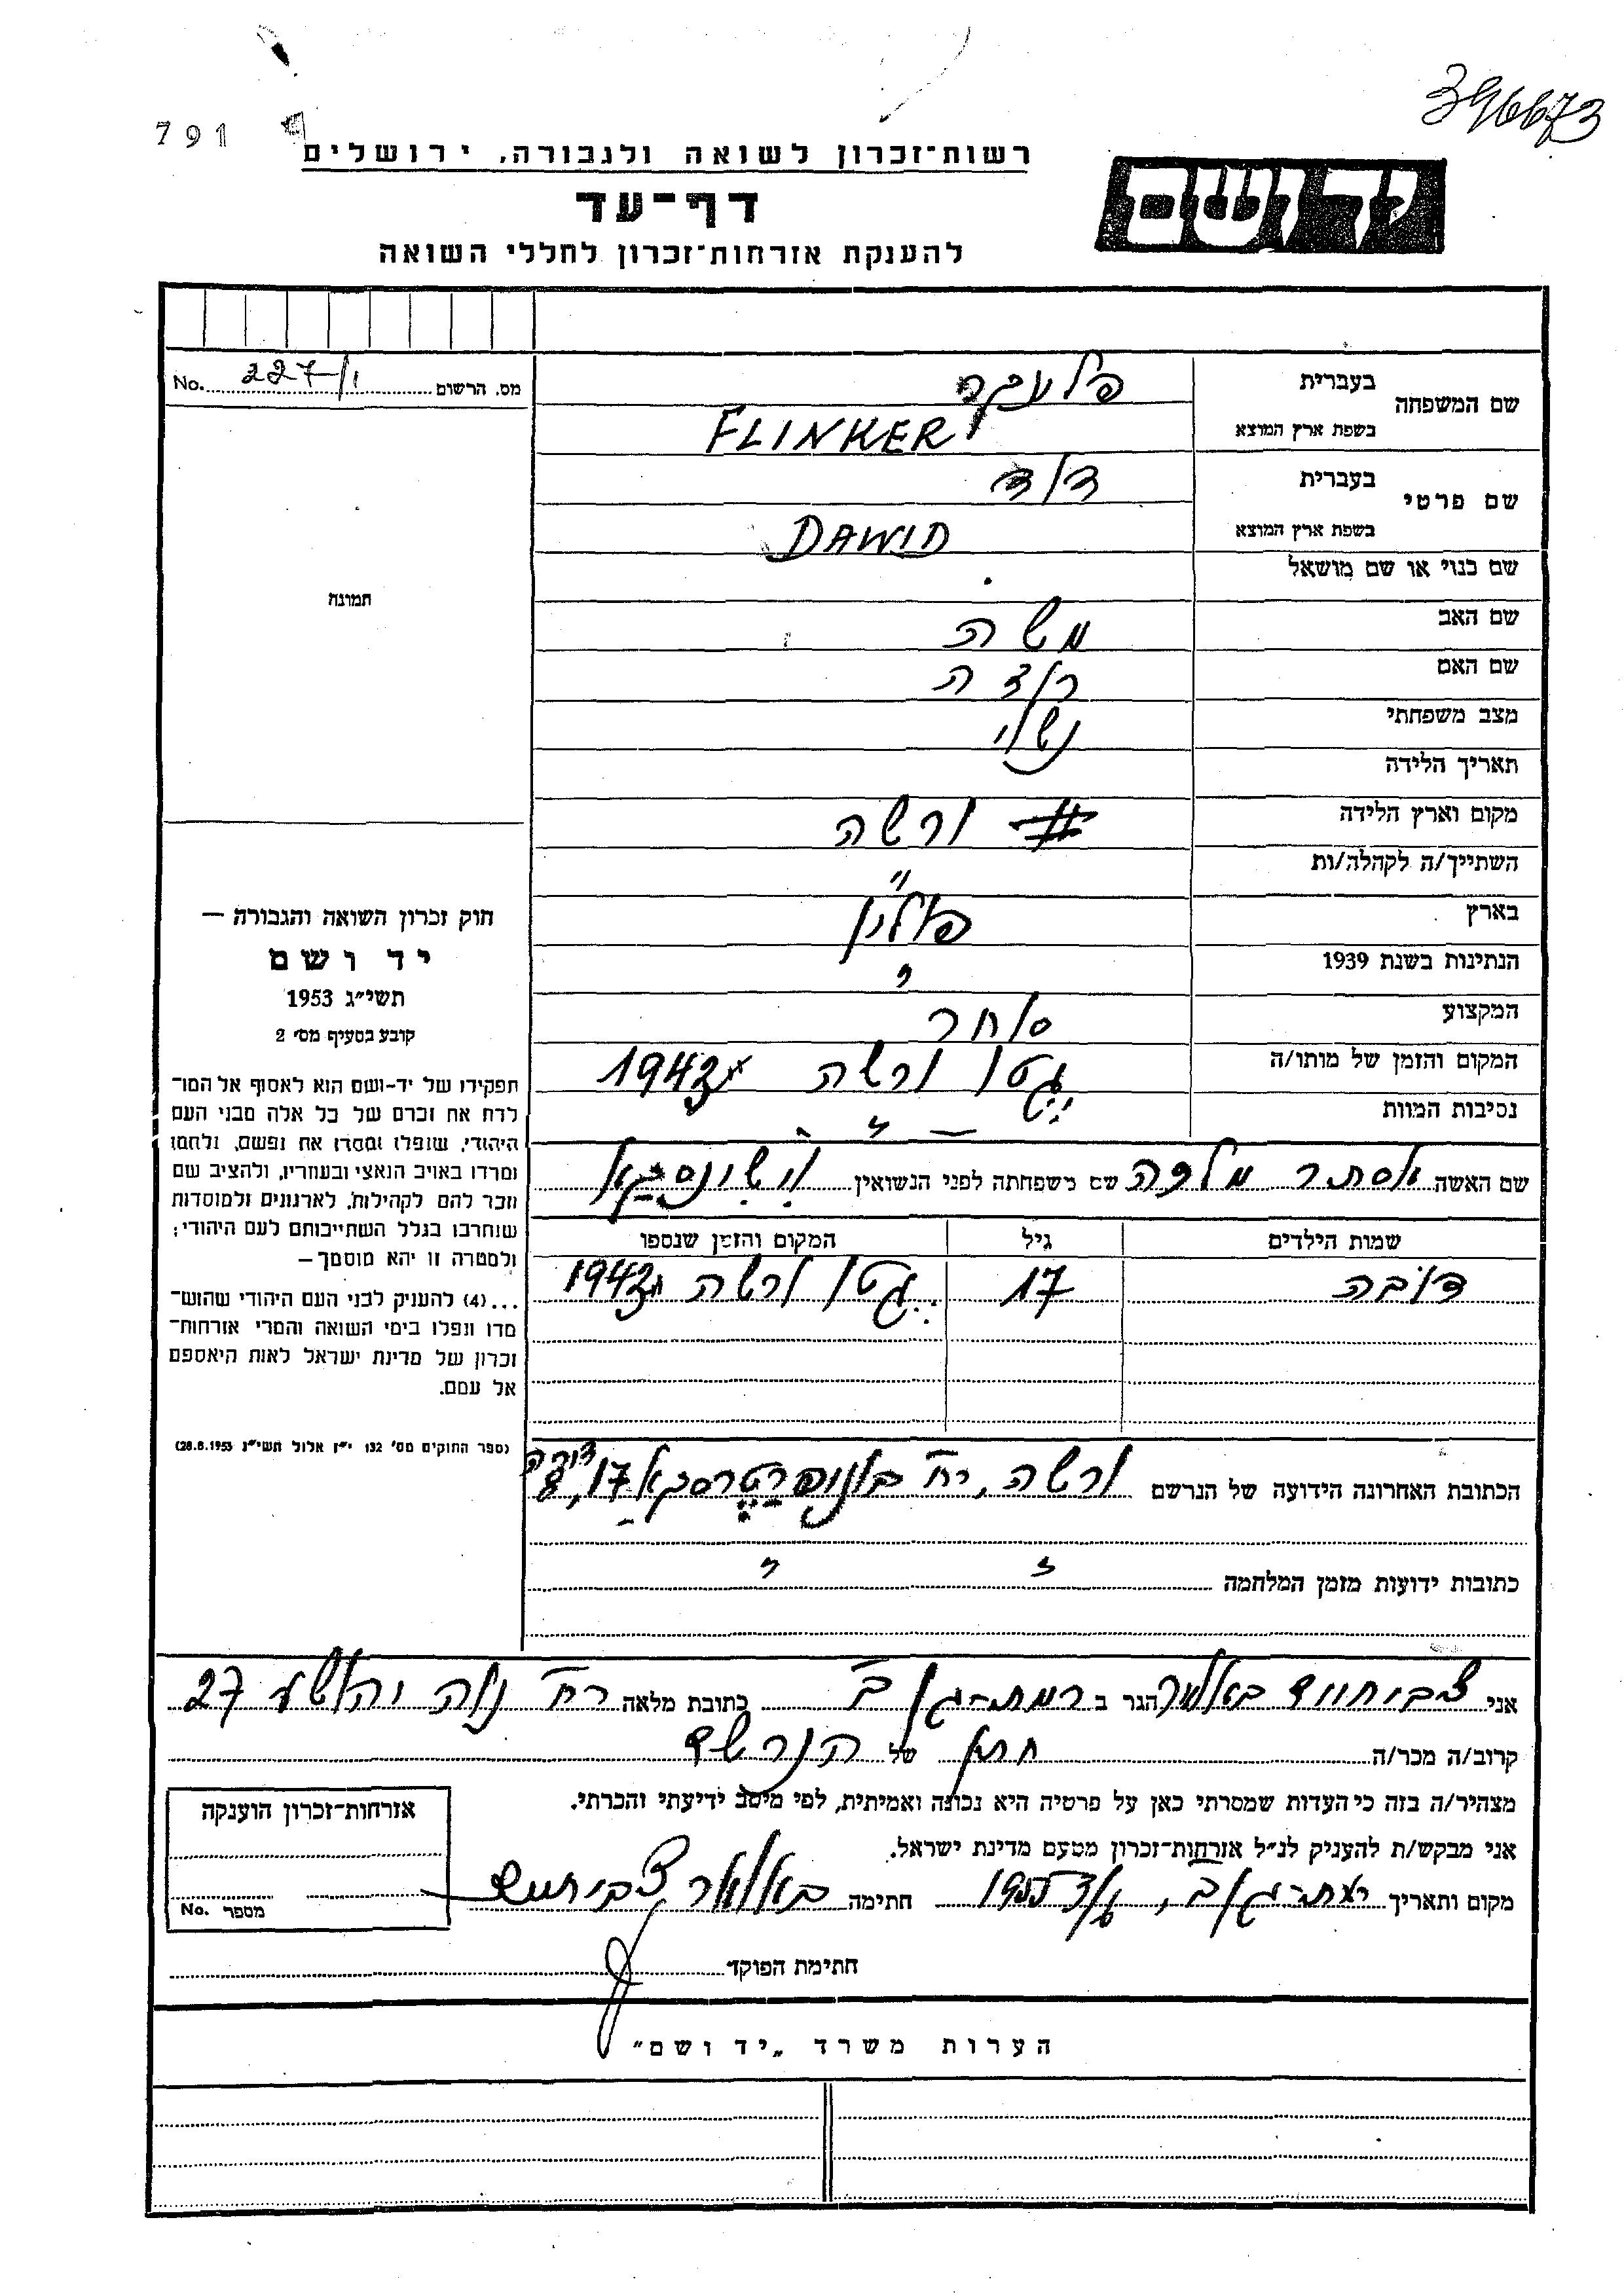 396673
791
רשות־זכרון לשואה ולגבורה, ירושלים
יד ושם
דף־עד
להענקת אזרחות־זכרון לחללי השואה
מס. הרשום 227/1 No.
שם המשפחה
בעברית
בשפת ארץ המוצא FLINKER
שם פרטי
בעברית דוד
בשפת ארץ המוצא DAWID
שם כנוי או שם מושאל
שם האב משה
שם האם
מצב משפחתי נשוי
תאריך הלידה
מקום וארץ הלידה ורשה
השתייך/ה לקהלה/ות "
בארץ פולין
הנתינות בשנת 1939 "
המקצוע סוחר
המקום והזמן של מותו/ה גטו ורשה 1942
נסיבות המוות
תמונה
חוק זכרון השואה והגבורה —
יד ושם
תשי״ג 1953
קובע בסעיף מס׳ 2
תפקידו של יד-ושם הוא לאסוף אל המו־
לדת את זכרם של כל אלה מבני העם
היהודי, שנפלו ומסרו את נפשם, נלחמו
ומרדו באויב הנאצי ובעוזריו, ולהציב שם
וזכר להם לקהילות, לארגונים ולמוסדות
שנחרבו בגלל השתייכותם לעם היהודי;
ולמטרה זו יהא מוסמך —
...(4) להעניק לבני העם היהודי שהוש־
מדו ונפלו בימי השואה והמרי אזרחות־
זכרון של מדינת ישראל לאות היאספם
אל עמם.
(ספר החוקים מס׳ 132 י״ז אלול תשי״ג 28.8.1953)
שם האשה אסתר מלכה שם משפחתה לפני הנשואין
שמות הילדים גיל המקום והזמן שנספו
דובה 17 גטו ורשה 1942
הכתובת האחרונה הידועה של הנרשם ורשה, רח׳ 17, דירה
כתובות ידועות מזמן המלחמה " "
אני הגר ב רמת-גן ב׳ כתובת מלאה רח׳ נוה יהושע 27
קרוב/ה מכר/ה חתן של הנרשם
מצהיר/ה בזה כי העדות שמסרתי כאן על פרטיה היא נכונה ואמיתית, לפי מיטב ידיעתי והכרתי.
אני מבקש/ת להעניק לנ״ל אזרחות־זכרון מטעם מדינת ישראל.
מקום ותאריך רמת-גן ב׳, חתימה
אזרחות־זכרון הוענקה
מספר No.
חתימת הפוקד
הערות משרד „יד ושם״